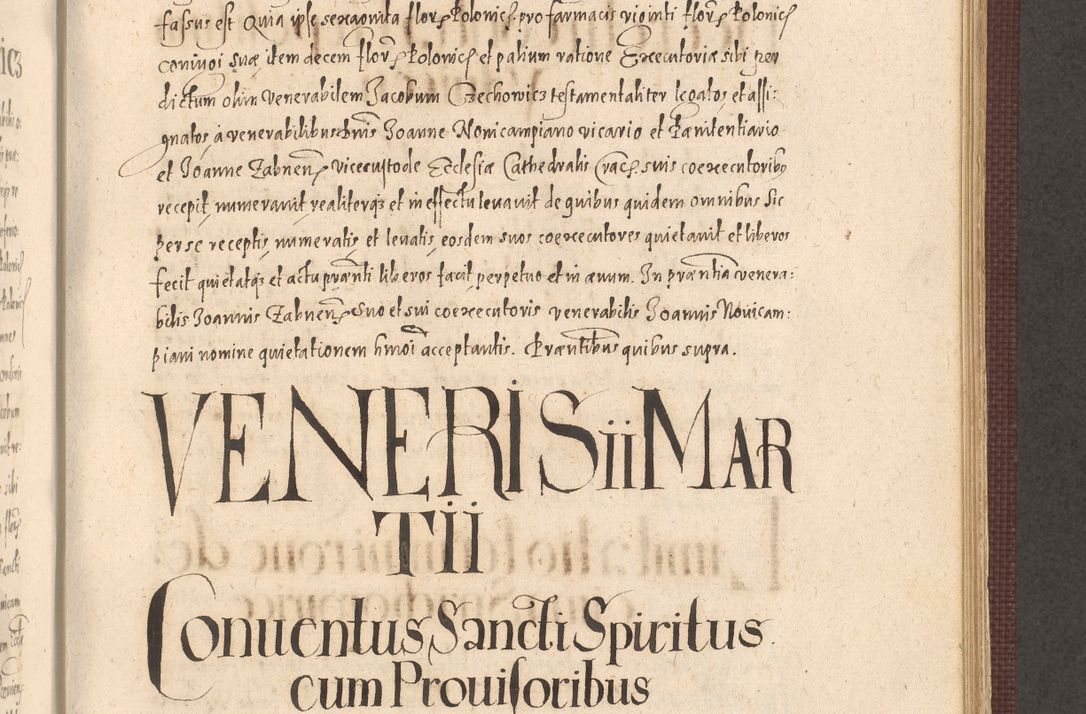 fassus est Quia ipse sexaginta flor Polonic pro farmacis viginti flor Polonic
coniugi suæ item decem flor Polonic et palium ratione Executoriæ sibi per
dictum olim venerabilem Jacobum Czechowicz testamentaliter legatos et assi:
gnatos à venerabilibus dnis Joanne Nouicampiano vicario et Pænitentiario
et Joanne Zabnen vicecustode Ecclesiæ Cathedralis Crac suis coexecutoribus
recepit, numeravit realiterqȝ et in effectu leuauit de quibus quidem omnibus sic
per se receptis, numeratis et leuatis, eosdem suos coexecutores quietauit et liberos
fecit quietatqȝ et actu præsnti liberos facit perpetuo et in æuum. In præsentia venera:
bilis Joannis Zabnen suo et sui coexecutoris venerabilis Joannis Nouicam:
piani nomine quietationem hmoi acceptantis. Præsentibus quibus supra.
VENERIS ii MAR
TII
Conuentus Sancti Spiritus
cum Prouisoribus